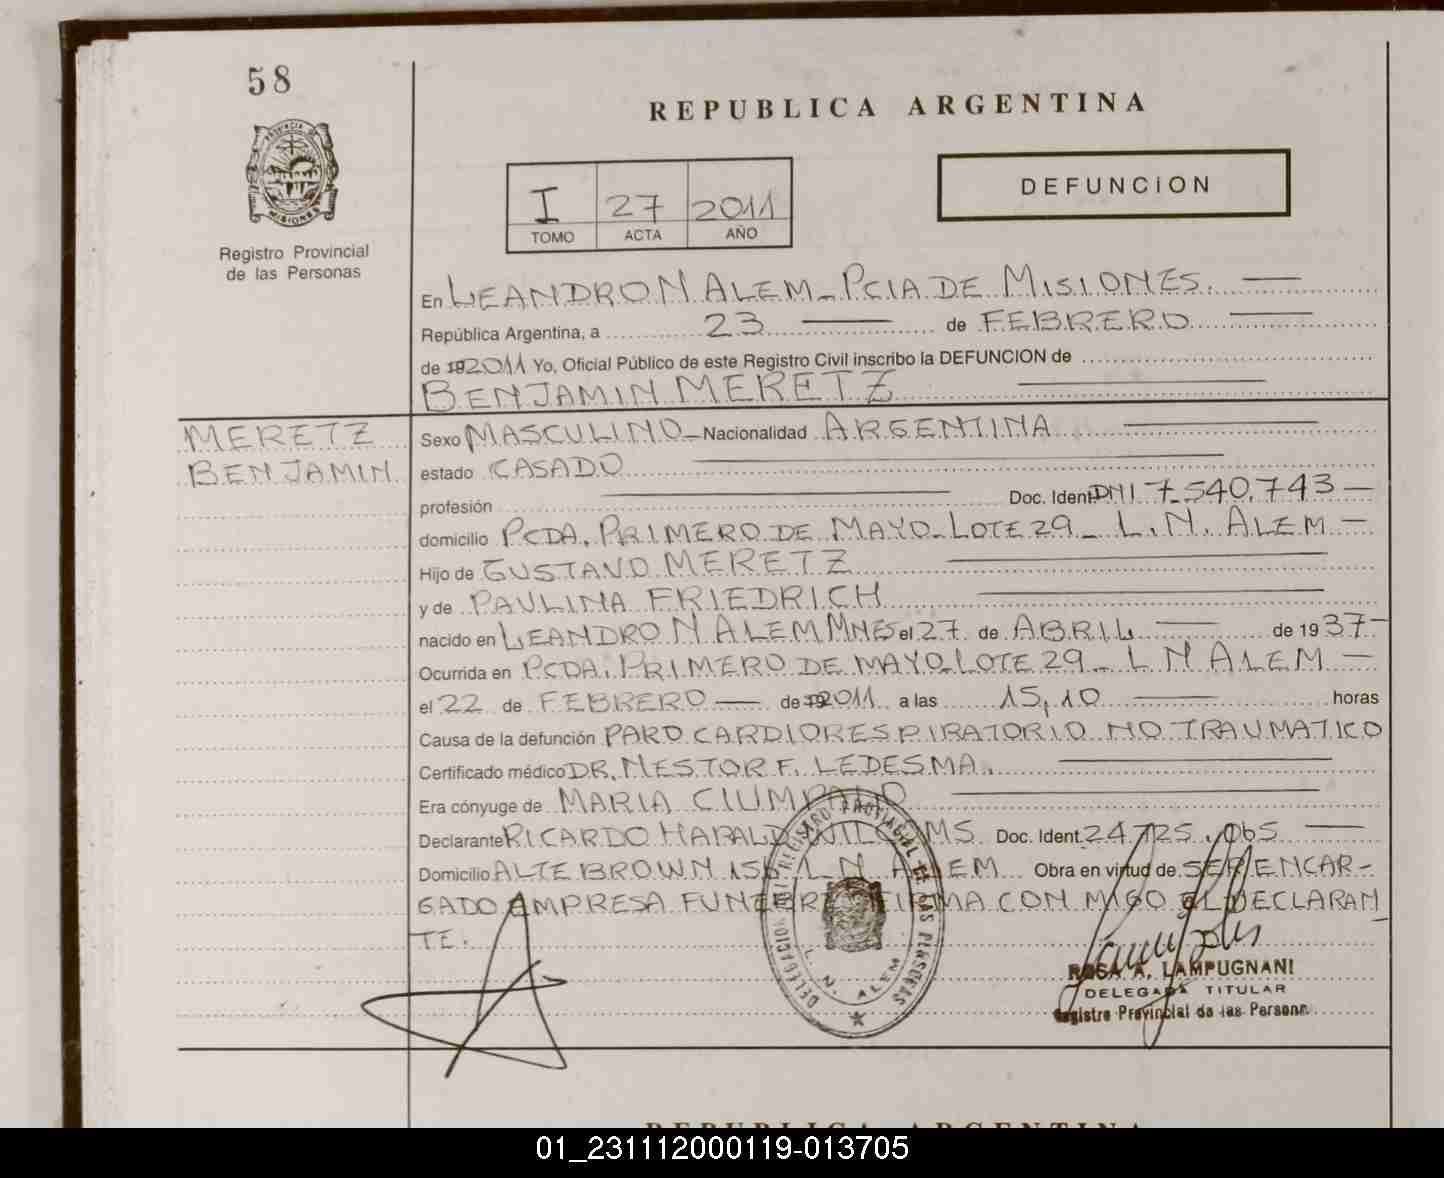 58
REPUBLICA ARGENTINA
PROVINCIA DE
MISIONES
Registro Provincial
de las Personas
I 27 2011
TOMO ACTA AÑO
DEFUNCiON
En LEANDRO N ALEM - PCIA DE MISIONES.
República Argentina, a 23 de FEBRERO
de 192011 Yo, Oficial Público de este Registro Civil inscribo la DEFUNCION de
BENJAMIN MERETZ
MERETZ
BENJAMIN
Sexo MASCULINO - Nacionalidad ARGENTINA
estado CASADO
profesión Doc. Ident. DNI 7.540.743 -
domicilio PCDA. PRIMERO DE MAYO - LOTE 29 - L. N. ALEM -
Hijo de GUSTAVO MERETZ
y de PAULINA FRIEDRICH
nacido en LEANDRO N ALEM MNES el 27 de ABRIL de 1937-
Ocurrida en PCDA. PRIMERO DE MAYO LOTE 29 - L N ALEM -
el 22 de FEBRERO de 192011 a las 15,10 horas
Causa de la defunción PARO CARDIORESPIRATORIO NO TRAUMATICO
Certificado médico DR. NESTOR F. LEDESMA.
Era cónyuge de MARIA
Declarante RICARDO HARALD Doc. Ident. 24.725.065
Domicilio ALTE BROWN 156 L N ALEM Obra en virtud de SER ENCAR-
GADO EMPRESA FUNEBRE FIRMA CON MIGO EL DECLARAN
TE.
DELEGACION DEL REGISTRO PROVINCIAL DE LAS PERSONAS
L. N. ALEM
ROSA A. LAMPUGNANI
DELEGADA TITULAR
Registro Provincial de las Personas
REPUBLICA ARGENTINA
01_231112000119-013705